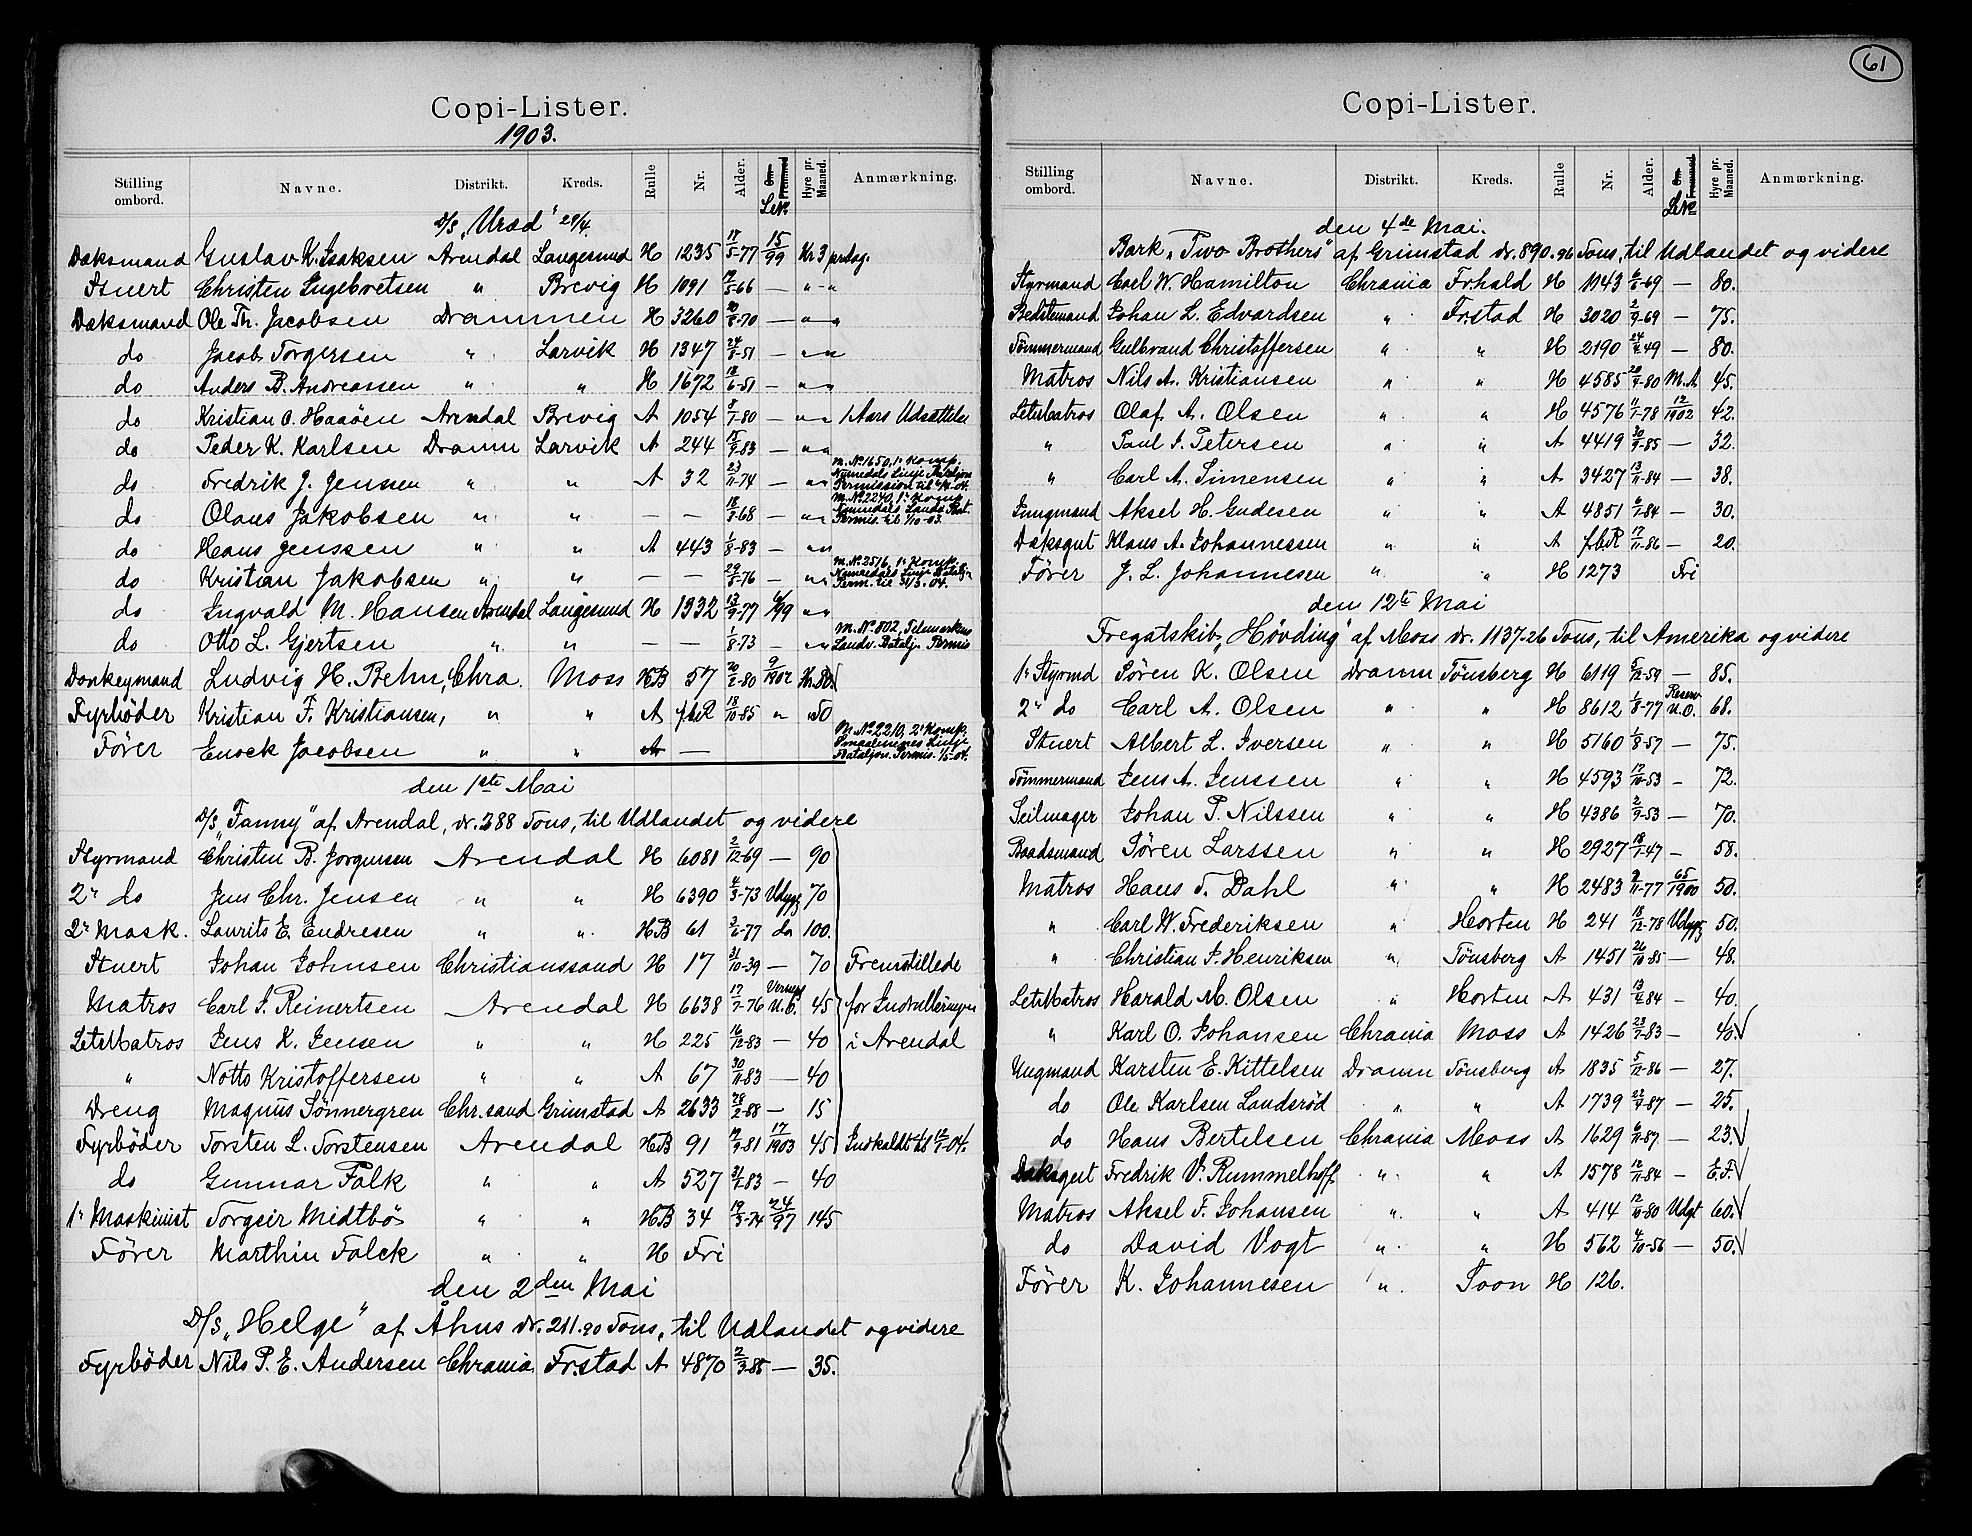 Copi-Lister.
1903.
Stilling ombord. Navne. Distrikt. Kreds. Rulle Nr. Alder. Hyre pr. Maaned. Anmærkning.
D/S „Uræd" 29/4.
Dæksmand Gustav K. Isaksen Arendal Langesund H 1235 17/5-77 15/99 Kr 3 pr dag.
Stuert Christen Ingebretsen " Brevig H 1091 /5-66 — " - "
Dæksmand Ole Th. Jacobsen Drammen H 3260 /8-70 — " "
do Jacob Torgersen " Larvik H 1347 24/8-51 — " "
do Anders B. Andreassen " " H 1672 18/6-51 — " "
do Kristian O. Haaöen Arendal Brevig A 1054 8/1-80 — " " 1 Aars Udsættelse
do Peder K. Karlsen Dramm Larvik A 244 15/9-83 — " "
do Fredrik J. Jenssen " " A 32 23/11-74 — " " M. No 1650, 1ste Komp. Numedals Linje Bataljon Permission til
do Olaus Jakobsen " " — — 18/8-68 — " " M. No 2240, 1ste Komp. Numedals Landv. Bat. Permis. til 1/10-03.
do Hans Jenssen " " A 443 1/8-83 — " "
do Kristian Jakobsen " " — — 29/5-76 — " " M. No 2576, 1ste Komp. Numedals Linje Batalj. Perm. til 31/3-04.
do Ingvald M. Hansen Arendal Langesund H 1332 13/9-77 /99 " "
do Otto L. Gjertsen " " — — 1/8-73 — " " M. No 802, Telemarkens Landv. Batalj. Permis
Donkeymand Ludvig H. Behn, Chra. Moss HB 57 20/2-80 9/1902 Kr. 80
Fyrböder Kristian F. Kristiansen, " " A fbR 18/10-85 " " 50
Förer Enock Jacobsen " " A — M. No 2210, 2den Komp. Smaalenenes Linje Bataljon. Permis. 1/5-04.
den 1ste Mai
D/S „Fanny" af Arendal, dr. 388 Tons, til Udlandet og videre
Styrmand Christen B. Jorgensen Arendal H 6081 2/12-69 — 90
2den do Jens Chr. Jensen " " H 6390 4/3-73 Udygt 70
2den Mask. Laurits E. Endresen " " HB 61 3/6-77 do 100.
Stuert Johan Johnsen Christianssand H 17 31/10-39 — 70 Fremstillede
Matros Carl J. Reinertsen Arendal H 6638 17/7-76 45 for Indrulleringen
LetMatros Jens K. Jensen " " H 225 16/12-83 — 40 i Arendal
" Notto Kristoffersen " " A 67 30/11-83 — 40
Dreng Magnus Sönnergren Chr.sand Grimstad A 2633 28/2-88 — 15
Fyrböder Torsten L. Torstensen Arendal HB 91 /9-81 17/1903 45 Indkaldt til
do Gunnar Falk " " A 527 31/8-83 — 40
1ste Maskinist Torgeir Midtbö " " HB 34 19/3-74 24/97 145
Förer Marthin Falck " " H Fri
den 2den Mai
D/S „Helge" af Åhus dr. 211.20 Tons, til Udlandet og videre
Fyrböder Nils P. E. Andersen Chrania Fr.stad A 4870 2/3-85 — 35.
61
Copi-Lister.
Stilling ombord. Navne. Distrikt. Kreds. Rulle Nr. Alder. Hyre pr. Maaned. Anmærkning.
den 4de Mai.
Bark „Two Brothers" af Grimstad dr. 890.96 Tons, til Udlandet og videre
Styrmand Carl W. Hamilton Chrania Fr.hald H 1143 /6-69 — 80.
Bedstemand Johan L. Edvardsen " Fr.stad H 3020 2/9-69 — 75.
Tömmermand Gulbrand Christoffersen " " H 2190 24/-49 — 80.
Matros Nils A. Kristiansen " " H 4585 20/9-80 M.A 45.
LetMatros Olaf A. Olsen " " H 4576 11/1-78 12/1902 42.
" Paul J. Petersen " " A 4419 30/9-85 — 32.
" Carl A. Simensen " " A 3427 13/11-84 — 38.
Jungmand Aksel H. Gudesen " " A 4851 /1-84 — 30.
Dæksgut Klaus A. Johannessen " " A fbR 17/11-86 — 20.
Förer J. L. Johannesen " " H 1273 Fri
den 12te Mai
Fregatskib „Hövding" af Moss dr. 1137-26 Tons, til Amerika og videre
1ste Styrmd Sören K. Olsen Dramm Tönsberg H 6119 5/12-59 — 85.
2den do Carl A. Olsen " " H 8612 1/8-77 Reserv U.O. 68.
Stuert Albert L. Iversen " " H 5160 1/8-57 — 75.
Tömmermand Jens A. Jenssen " " H 4593 17/10-53 — 72.
Seilmager Johan P. Nilssen " " H 4386 2/9-53 — 70.
Baadsmand Sören Larssen " " H 2927 18/1-47 — 58.
Matros Hans T. Dahl " " H 2483 8/11-77 65/1900 50.
" Carl W. Frederiksen " Horten H 241 18/12-78 Udygt 50.
" Christian J. Henriksen " Tönsberg A 1451 26/10-85 — 48.
LetMatros Harald M. Olsen " Horten A 431 13/-84 — 40.
" Karl O. Johansen Chrania Moss A 1426 23/7-83 — 40.
Ungmand Karsten E. Kittelsen Dramm Tönsberg A 1835 5/11-86 — 27.
do Ole Karlsen Landsröd " " A 1739 22/9-87 — 25.
do Hans Bertelsen Chrania Moss A 1629 /11-87 — 23.
Dæksgut Fredrik V. Rummelhoff " " A 1578 12/11-84 — E.F.
Matros Aksel F. Johansen " " A 414 12/10-80 Udgt 60.
do David Vogt " " H 562 /10-56 — 50.
Förer K. Johannesen " Soon H 126.